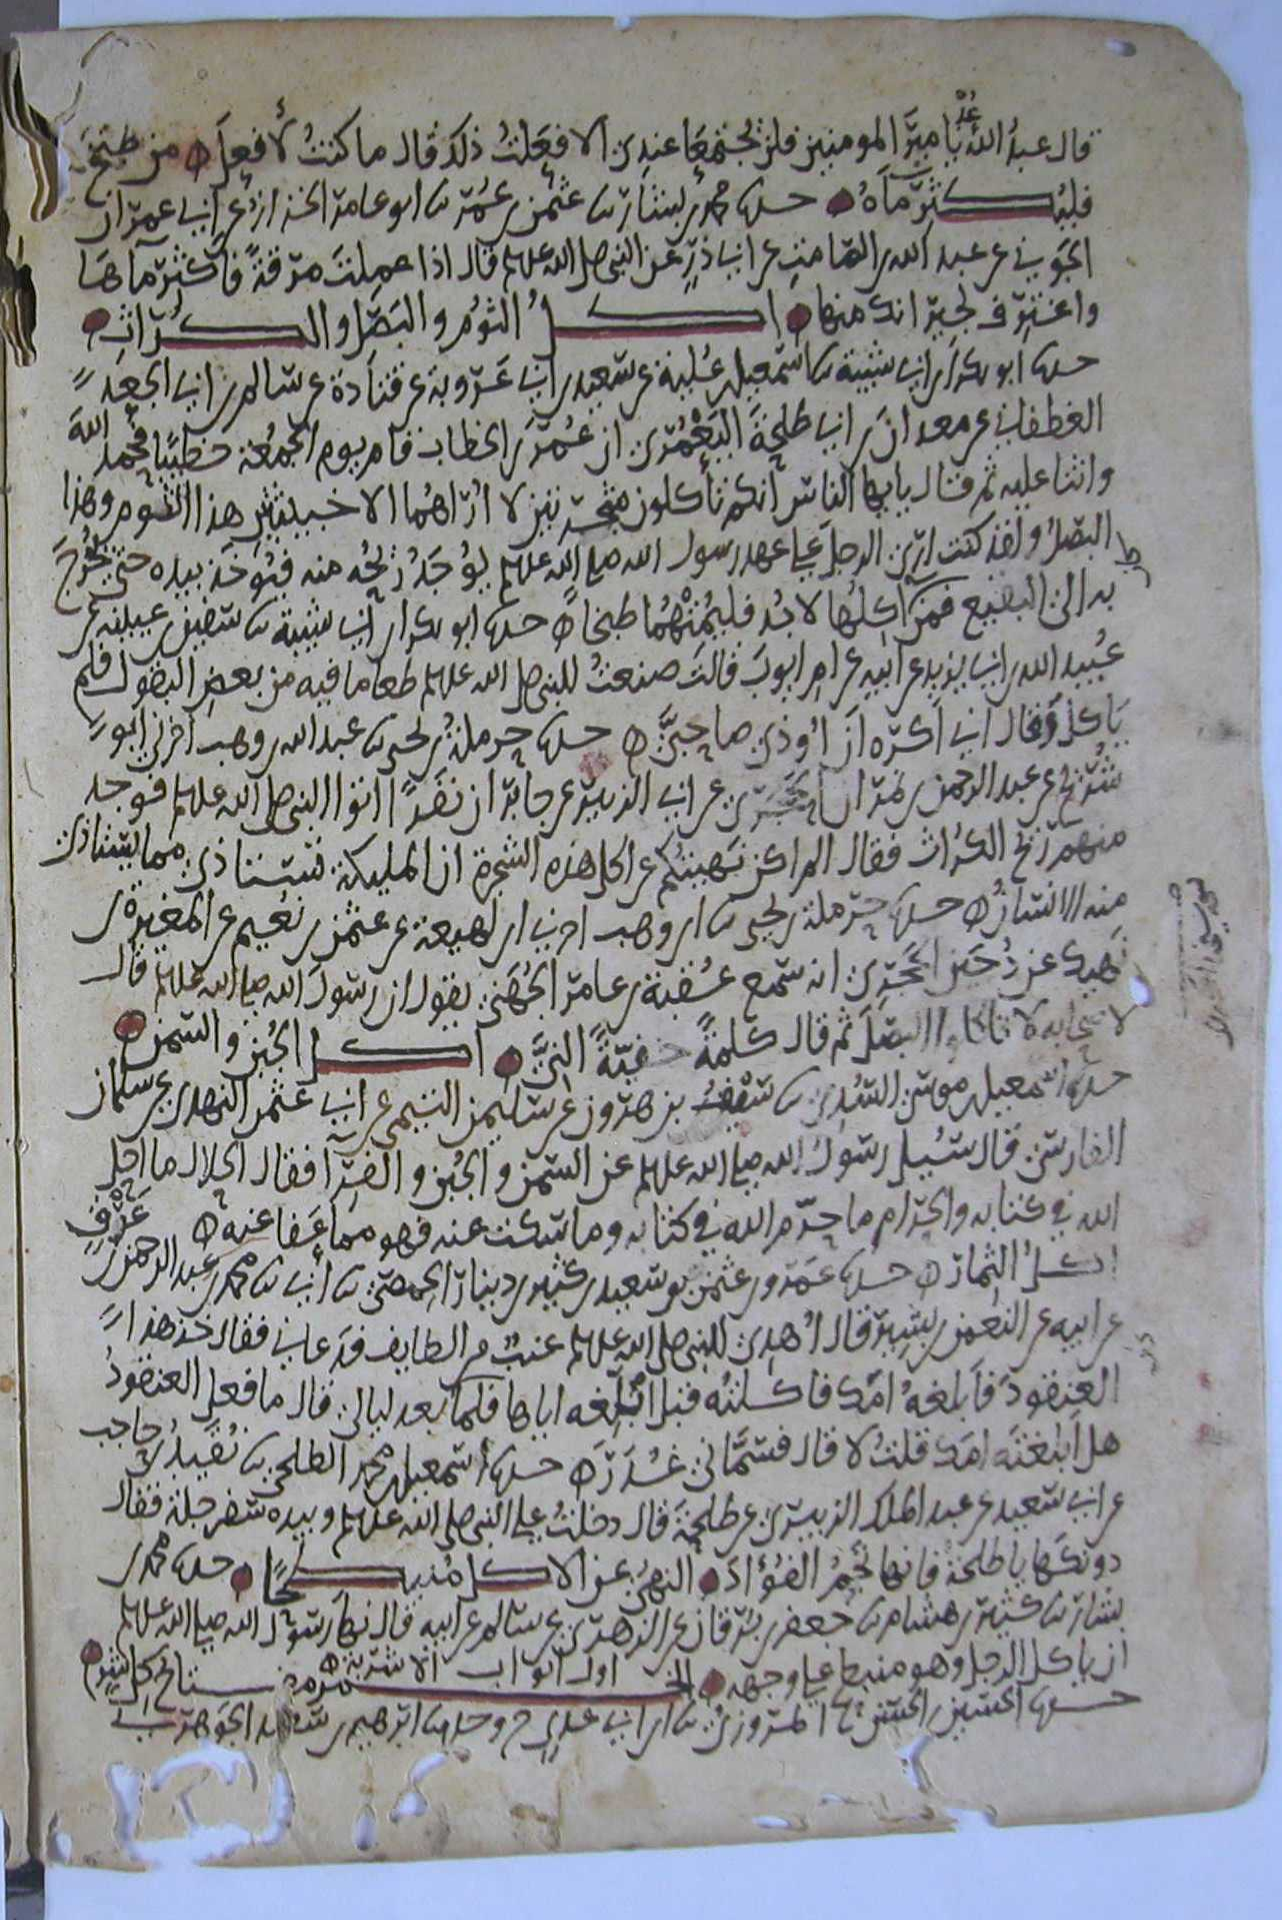 قال عبد الله عُدْ يا امير المومنين فلن يجتمعا عندي الا فعلت ذلك قال ما كنت لأفعل من طبخ
فليكثر ماه حدثنا محمد بن بشار نا عثمن بن عمر نا ابو عامر الخزاز عن ابي عمران
الجوني عن عبد الله بن الصامت عن ابي ذر عن النبي صلى الله عليه وسلم قال اذا عملت مرقة فأكثر ماها
واغترف لجيرانك منها اكل الثوم والبصل والكراث
حدثنا ابو بكر بن ابي شيبة نا اسمعيل بن علية عن سعيد بن ابي عروبة عن قتادة عن سالم بن ابي الجعد
الغطفاني عن معدان بن ابي طلحة اليعمري ان عمر بن الخطاب قام يوم الجمعة خطيبا فحمد الله
واثنا عليه ثم قال يايها الناس انكم تأكلون شجرتين لا اراهما الا خبيثتين هذا الثوم وهذا
البصل ولقد كنت ارى الرجل على عهد رسول الله صلى الله عليه وسلم يوجد ريحه منه فيوخذ بيده حتى يخرج
به الى البقيع فمن اكلها لا بد فليمتهما طبخا حدثنا ابو بكر بن ابي شيبة نا سفين بن عيينة عن
عبيد الله بن ابي يزيد عن ابيه عن ام ايوب قالت صنعت للنبي صلى الله عليه وسلم طعاما فيه من بعض البقول فلم
ياكل وقال اني اكره ان اوذي صاحبي حدثنا حرملة بن يحيى نا عبد الله بن وهب اخبرني ابو
شريح عن عبد الرحمن بن نمران الحجري عن ابي الزبير عن جابر ان نفرا اتوا النبي صلى الله عليه وسلم فوجد
منهم ريح الكراث فقال الم اكن نهيتكم عن اكل هذه الشجرة ان المليكة تستاذى مما يستاذى
منه الانسان حدثنا حرملة بن يحيى نا ابن وهب اخبرني ابن لهيعة عن عثمن بن نعيم عن المغيرة بن
نهيك عن دخين الحجري انه سمع عقبة بن عامر الجهني يقول ان رسول الله صلى الله عليه وسلم قال
لاصحابه لا تاكلوا البصل ثم قال كلمة خفية النيّ اكل الجبن والسمن
حدثنا اسمعيل بن موسى السدي نا سيف بن هرون عن سليمن التيمي عن ابي عثمن النهدي عن سلمان
الفارسي قال سيل رسول الله صلى الله عليه وسلم عن السمن والجبن والفرآ فقال الحلال ما احل
الله في كتابه والحرام ما حرم الله في كتابه وما سكت عنه فهو مما عفا عنه
اكل الثمار حدثنا عمرو بن عثمن بن سعيد بن كثير بن دينار الحمصي نا أبي نا محمد بن عبد الرحمن بن عرق
عن ابيه عن النعمن بن بشير قال اهدي للنبي صلى الله عليه وسلم عنب من الطايف فدعاني فقال خذ هذا
العنقود فأبلغه امك فاكلته قبل ان ابلغه اياها فلما بعد ليالي قال ما فعل العنقود
هل ابلغته امك قلت لا قال فسماني غدر حدثنا اسمعيل بن محمد الطلحي نا نقيب بن حاجب
عن ابي سعيد عن عبد الملك الزبيري عن طلحة قال دخلت على النبي صلى الله عليه وسلم وبيده سفرجلة فقال
دونكها يا طلحة فانها تجم الفؤاد النهي عن الاكل منبطحا حدثنا محمد بن
بشار نا كثير بن هشام نا جعفر بن برقان عن الزهري عن سالم عن ابيه قال نها رسول الله صلى الله عليه وسلم
ان ياكل الرجل وهو منبطح على وجهه اول ابواب الاشربة الخمر مفتاح كل شر
حدثنا الحسين بن الحسن المروزي نا ابن ابي عدي ح وحدثنا ابرهيم بن سعيد الجوهري